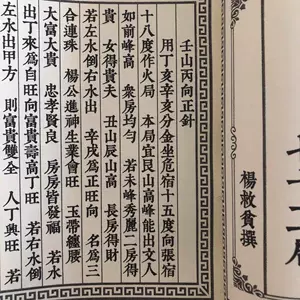 楊救貧撰
壬山丙向正針
用丁亥辛亥分金坐危宿十五度向張宿
十八度作火局 本局宜艮山高峰能出文人
如前峰高 衆房均勻 若未峰秀麗二房得
貴 女得貴夫 丑山辰山高 長房得財
若左水倒右水出 辛戌爲正旺向 名爲三
合連珠 楊公進神生業會旺 玉帶纏腰
大富大貴 忠孝賢良 房房皆發福 若水
出丁來爲自旺向富貴壽高丁旺 若右水倒
左水出甲方 則富貴雙全 人丁興旺 若